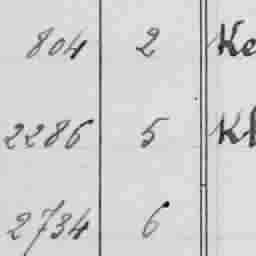 804 2 Ke
2286 5 Kl
2734 6